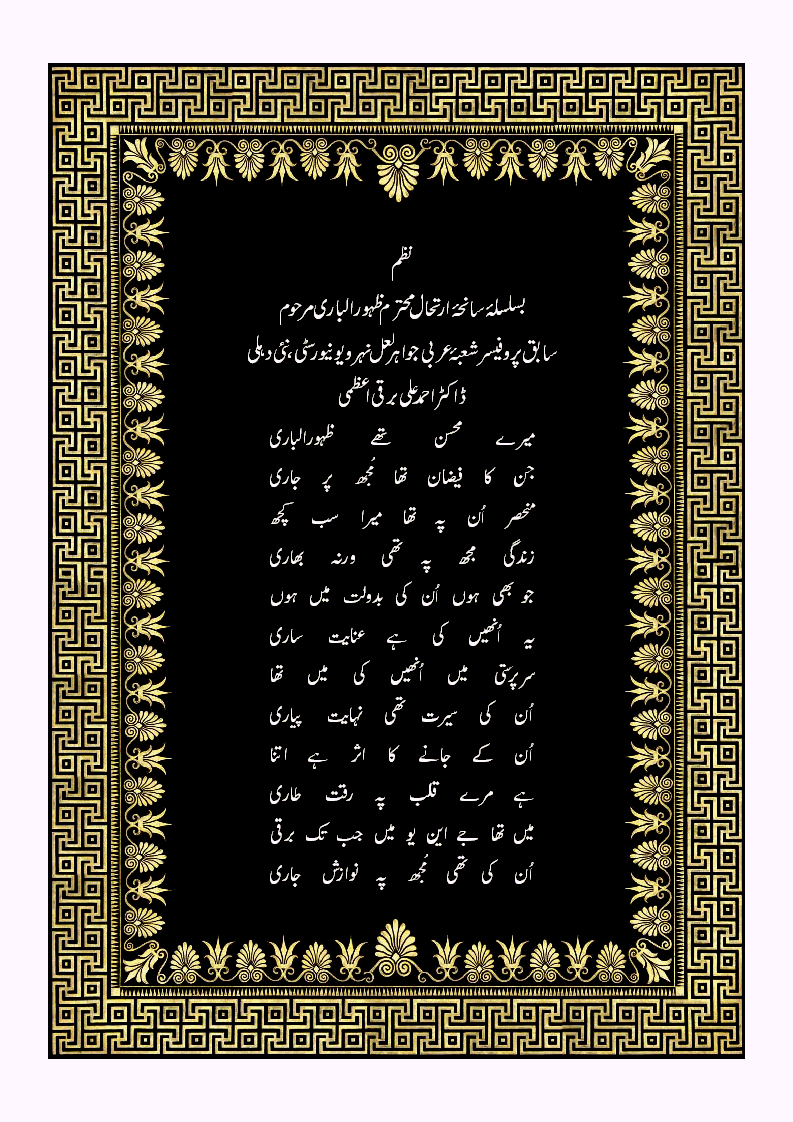 نظم
بسلسلۂ سانحۂ ارتحال محترم ظہورالباری مرحوم
سابق پروفیسر شعبۂ عربی جواہر لعل نہرو یونیورسٹی ، نئی دہلی
ڈاکٹر احمد علی برقی اعظمی
میرے محسن تھے ظہورالباری
جن کا فیضان تھا مُجھ پر جاری
منحصر اُن پہ تھا میرا سب کچھ
زندگی مجھ پہ تھی ورنہ بھاری
جو بھی ہوں اُن کی بدولت میں ہوں
یہ اُنھیں کی ہے عنایت ساری
سرپرستی میں اُنھیں کی میں تھا
اُن کی سیرت تھی نہایت پیاری
اُن کے جانے کا اثر ہے اتنا
ہے مرے قلب پہ رقت طاری
میں تھا جے این یو میں جب تک برقی
اُن کی تھی مُجھ پہ نوازش جاری